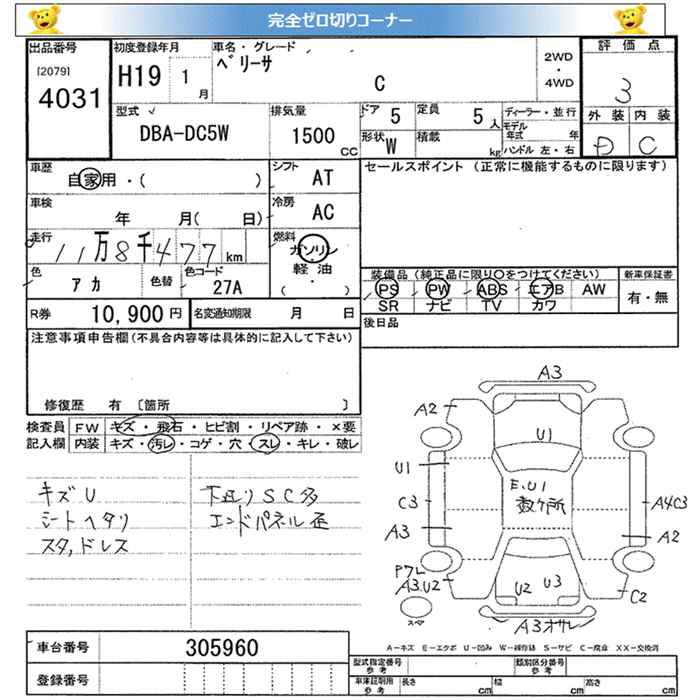 完全ゼロ切りコーナー
出品番号
[2079]
4031
初度登録年月
H19 1 月
車名・グレード
ベリーサ
C
2WD
・
4WD
評価点
3
外装 内装
D C
型式
DBA-DC5W
排気量
1500 CC
ドア 5
定員 5 人
形状 W
積載 kg
ディーラー・並行
モデル年式 年
ハンドル 左・右
車歴
自家用・( )
シフト AT
車検
年 月( 日)
冷房 AC
走行
11万8千477 km
燃料
ガソリン
軽油
( ・ )
色 アカ
色替
色コード
27A
R券 10,900 円
名変通知期限 月 日
セールスポイント (正常に機能するものに限ります)
装備品(純正品に限り○をつけてください)
新車保証書
PS PW ABS エアB AW
有・無
SR ナビ TV カワ
後日品
注意事項申告欄(不具合内容等は具体的に記入して下さい)
修復歴 有 〔箇所 〕
検査員
記入欄
FW キズ・飛石・ヒビ割・リペア跡・×要
内装 キズ・汚レ・コゲ・穴・スレ・キレ・破レ
キズU
シートヘタリ
スタッドレス
下廻りSC多
エンドパネル歪
A3
A2
U1
U1
E.U1
数ヶ所
C3
A4C3
A3
A2
A3.U2
U2 U3
C2
スペア
A3オサレ
A-キズ E-エクボ U-凹み W-補修跡 S-サビ C-腐食 XX-交換済
車台番号 305960
登録番号
型式指定番号
参考
類別区分番号
参考
車庫証明用
参考
長さ cm
幅 cm
高さ cm